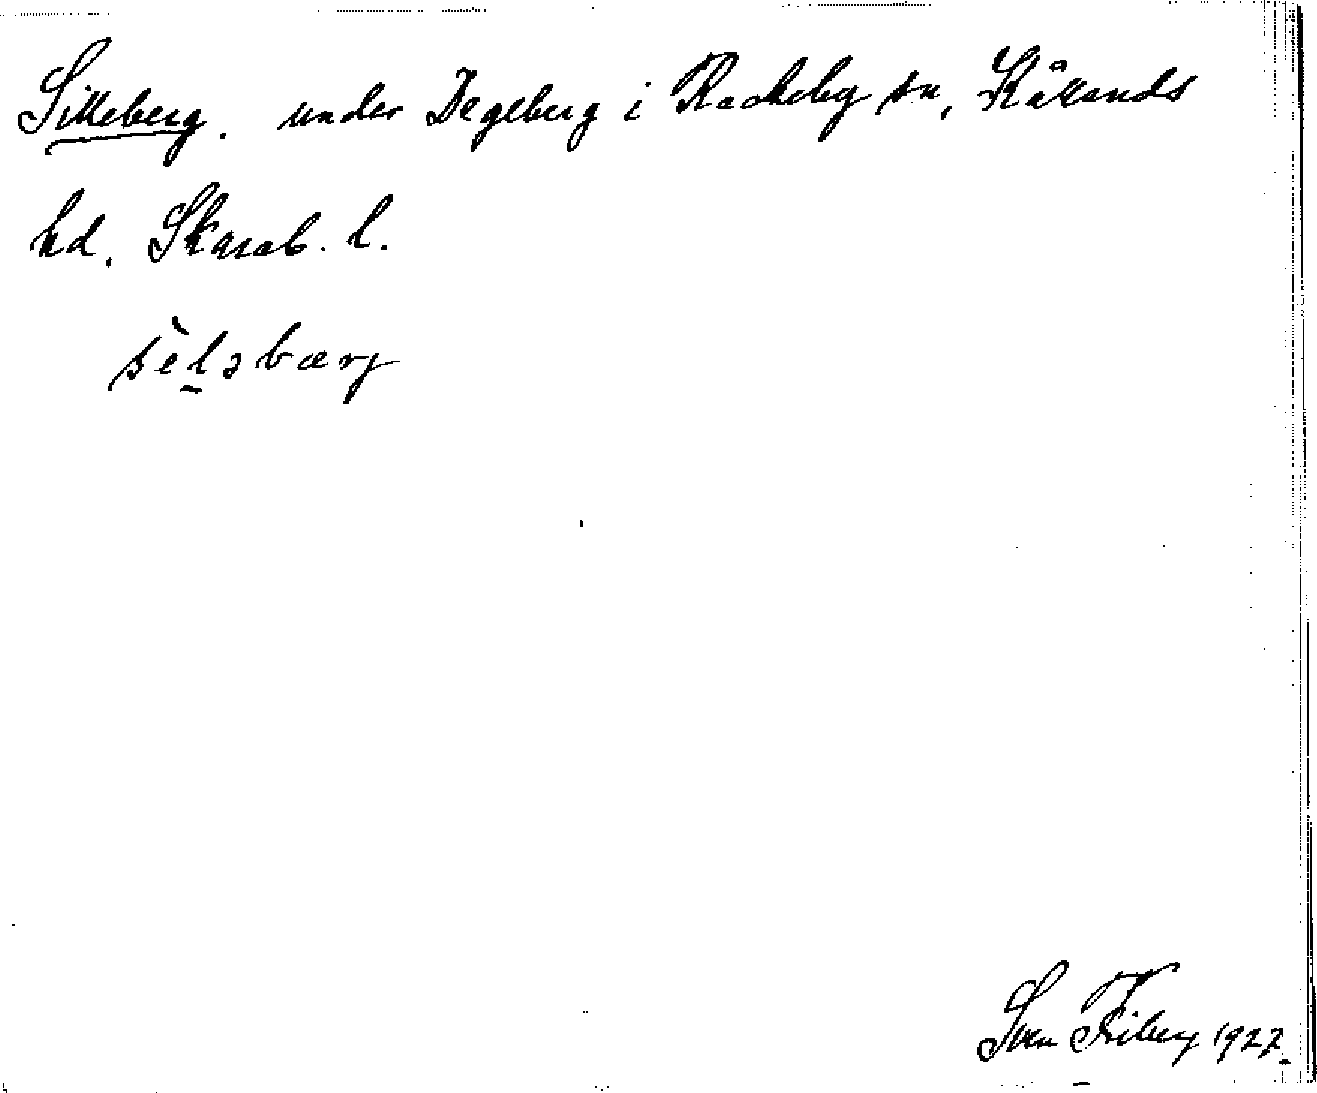 Silleberg. under Degeberg i Rackeby sn, Kållands
hd. Skarab. l.
sèl̠əbærj
Sven Friberg 1922.